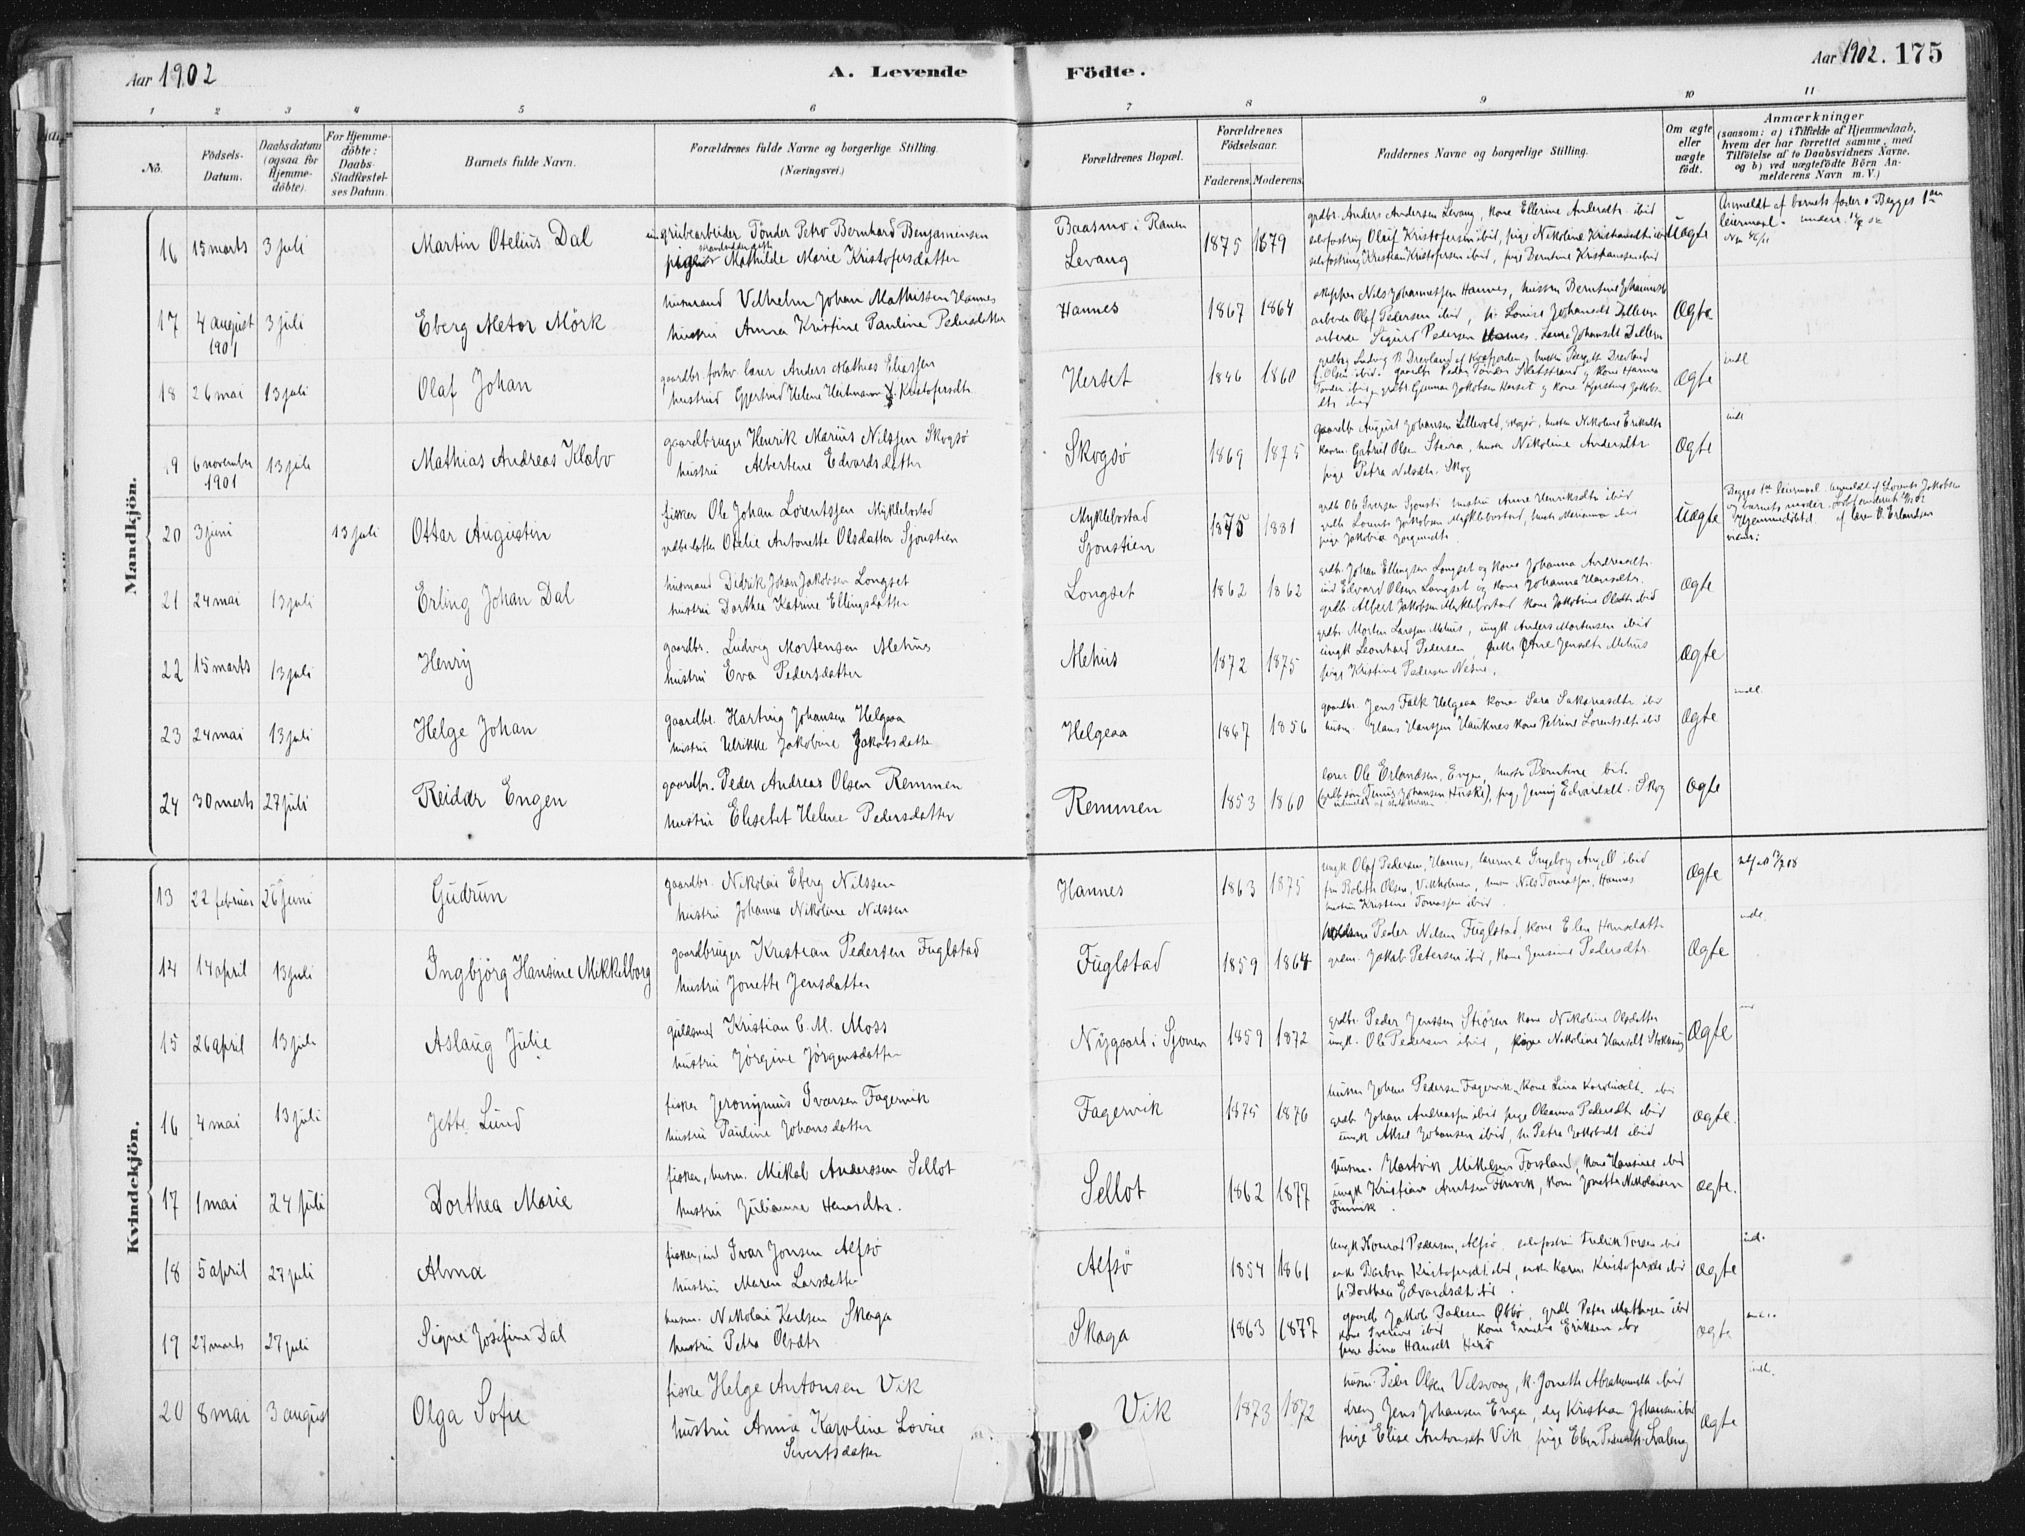 Aar 1902
A. Levende Födte.
Aar 1902. 175
1 2 3 4 5 6 7 8 9 10 11
No.
Födsels-Datum.
Daabsdatum (ogsaa for Hjemme-döbte).
For Hjemme-döbte: Daabs-Stadfæstel-ses Datum.
Barnets fulde Navn.
Forældrenes fulde Navne og borgerlige Stilling. (Næringsvei.)
Forældrenes Bopæl.
Forældrenes Födselsaar.
Faderens. Moderens.
Faddernes Navne og borgerlige Stilling.
Om ægte eller uægte födt.
Anmærkninger
(saasom: a) i Tilfælde af Hjemmedaab, hvem der har forrettet samme, med Tilföielse af to Daabsvidners Navne, og b) ved uægtefödte Börn An-melderens Navn m. V.)
Mandkjön.
16 15 marts 3 juli Martin Otelius Dal
grubearbeider Tönder Petro Bernhard Benjaminsen
pige Mathilde Marie Kristofersdatter
Baasmo i Ranen
Levang
1875 1879
grdbr. Anders Andersen Levang, kone Ellerine Andersdtr. ibid
selvfostring Olaif Kristofersen ibid, pige Nikoline Kristiansdtr ibid
selvfostring Kristian Kristofersen ibid, pige Berntine Kristiansen ibid
Uægte
Anmeldt af barnets fader. Begges 1ste
leiermaal.
17 4 august 1901 3 juli Eberg Metor Mörk
husmand Vilhelm Johan Mathissen Hannes
hustru Anna Kristine Pauline Pedersdatter
Hannes
1867 1864
skipper Nils Johannessen Hannes, hustru Berntine Johannsdtr
arbeider Olaf Pedersen ibid, Louise Johansdt
arbeider Sigurd Pedersen Hannes
Ægte
18 26 mai 13 juli Olaf Johan
gaardbr. forhv. lærer Anders Mathias Eliassen
hustru Gjertrud Helene Heitmann Kristofersdtr.
Herset
1846 1860
Ægte
indl
19 6 november 1901 13 juli Mathias Andreas Klæbo
gaardbruger Henrik Marius Nilssen Skogsö
hustru Albertine Edvardsdatter
Skogsö
1869 1875
gaardbr August Johansen Lillevold, Skogsö, hustru Nikoline Eriksdtr
Gabriel Olsen Stenra, hustr. Nikoline Andersdtr
pige Petra Nilsdtr. Skog
Ægte
indl
20 3 juni 13 juli Ottar Augustin
fisker Ole Johan Lorentssen Myklebostad
grdbr datter Otelie Antonette Olsdatter Sjonstien
Myklebostad
Sjonstien
1875 1881
grdb Ole Iversen Sjonsti hustru Anne Henriksdtr ibid
grdb Lorents Jakobsen Myklebostad, hustr Marianna ibid
Uægte
Begges 1ste leiermaal. Anmeldt af Lorents Jakobsen
og barnets moder.
Hjemmedöbt af lærer O. Erlandsen
21 24 mai 13 juli Erling Johan Dal
husmand Didrik Johan Jakobsen Longset
hustru Dorthea Katrine Ellingsdatter
Longset
1862 1862
grdb. Johan Ellingsen Longset og kone Johanna Andreasdtr.
ind Edvard Olsen Longset og kone Johanna Hansdtr.
grdb Albert Jakobsen Myklebostad kone Jakobine Olsdtr ibid
Ægte
22 15 marts 13 juli Henrij
gaardbr. Ludvig Mortensen Mehus
hustru Eva Pedersdatter
Mehus
1872 1875
grdb. Morten Larssen Mehus, ungk Anders Mortensen ibid
ungk Leonhard Pedersen, Jensdtr Mehus
pige Kristine Pedersen Nesne.
Ægte
23 24 mai 13 juli Helge Johan
gaardbr. Hartvig Johansen Helgaa
hustru Ulrikke Jakobine Jakobsdatter
Helgeaa
1867 1856
gaardbr. Jens Falk Helgeaa kone Sara Sakariasdtr ibid
husm. Hans Hanssen Hauknes kone Petrine Lorentsdt ibid
Ægte
indl.
24 30 marts 27 juli Reidar Engen
gaardbr. Peder Andreas Olsen Remmen
hustru Elisebet Helene Pedersdatter
Remmen
1853 1860
lærer Ole Erlandsen, Engen, hustr Berntine ibid.
Johansen Huske), pige Jennig Edvardsdt. Skog
Ægte
Kvindekjön.
13 22 februar 26 juni Gudrun
gaardbr. Nikolai Eberg Nilssen
hustru Johanna Nikoline Nilssen
Hannes
1863 1875
ungk Olaf Pedersen, Hannes, lærerinde Ingeborg Angell ibid
Olsen, Vikholmen, Nils Tomassen, Hannes
hustru Kristine Tomassen ibid.
Ægte
14 14 april 13 juli Ingbjörg Hansine Mikkelborg
gaardbruger Kristian Pedersen Fuglstad
hustru Jonette Jensdatter
Fuglstad
1859 1864
Peder Nilsen Fuglstad, kone Elen Hansdatter
Jakob Petersen ibid, kone Jensine Pedersdtr.
Ægte
indl.
15 26 april 13 juli Aslaug Julie
guldsmed Kristian C. M. Moss
hustru Jörgine Jörgensdatter
Nygaard i Sjonen
1859 1872
grdbr. Peder Jenssen Strören kone Nikoline Olsdatter
ungk. Ole Pedersen ibid, pige Nikoline Hansdt
Ægte
16 4 mai 13 juli Jette Lund
fisker Jeronymus Ivarsen Fagervik
hustru Pauline Johansdatter
Fagervik
1875 1876
husm Johan Pedersen Fagervik kone Lina Karolinedt. ibid
grdb. Johan Andreassen ibid pige Oleanna Pedersdt ibid
ungk Aksel Johansen ibid, h. Petra Jakobsdt ibid
Ægte.
17 1 mai 24 juli Dorthea Marie
fisker, husm. Mikal Anderssen Sellot
hustru Julianna Hansdtr.
Sellot
1862 1877
husm. Hartvik Mikkelsen Forsland, kone Hansine ibid
ungk Kristian Arntsen Finvik, kone Jonetta Nikolaisen
Finvik.
Ægte.
18 5 april 27 juli Alma
fisker, ind Ivar Jonsen Alfsö
hustru Maren Larsdatter
Alfsö
1854 1861
ungk Konrad Pedersen, Alfsö, Fredrik Torsen ibid
enke Barbra Kristofersdt ibid, enke Karen Kristofersdt ibid
p. Dorthea Edvardsdtr ibid.
Ægte
ind.
19 27 marts 27 juli Signe Josefine Dal
husm. Nikolai Karlsen Skaga
hustru Petra Olsdtr
Skaga
1863 1877
gaardb Jakob Pedersen Öbbö, grdb Peter Mathisen ibid
Eriksen ibid
pige Lina Hansdt
Ægte
20 8 mai 3 august Olga Sofie
fisker Helge Antonsen Vik
hustru Anna Karoline Lovise
Sivertsdatter
Vik
1873 1872
husm. Peder Olsen Valsvaag, k. Jonetta Abrahamsdt ibid
dreng Jens Johansen Engen, dreg Kristian Johansen ibid
pige Elise Antonsdt Vik pige
Ægte
indl.